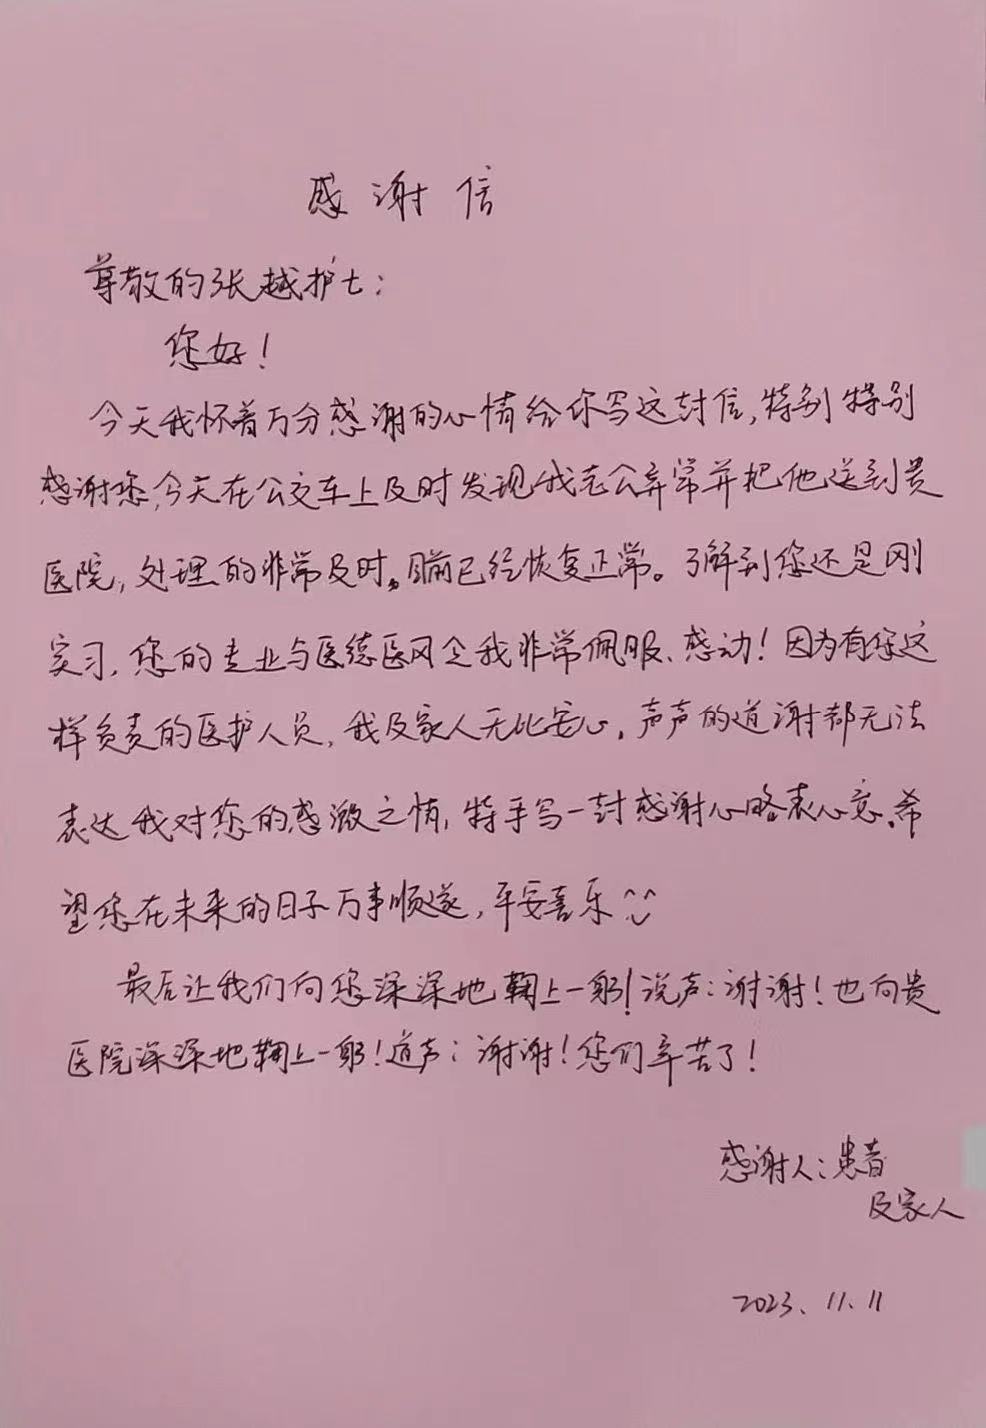 感谢信
尊敬的张越护士：
您好！
今天我怀着万分感谢的心情给你写这封信，特别特别
感谢您，今天在公交车上及时发现我老公异常并把他送到贵
医院，处理的非常及时。目前已经恢复正常。了解到您还是刚
实习，您的专业与医德医风令我非常佩服、感动！因为有您这
样负责的医护人员，我及家人无比安心，声声的道谢都无法
表达我对您的感激之情，特手写一封感谢心略表心意。希
望您在未来的日子万事顺遂，平安喜乐
最后让我们向您深深地鞠上一躬！说声：谢谢！也向贵
医院深深地鞠上一躬！道声：谢谢！您们辛苦了！
感谢人：患者
及家人
2023.11.11